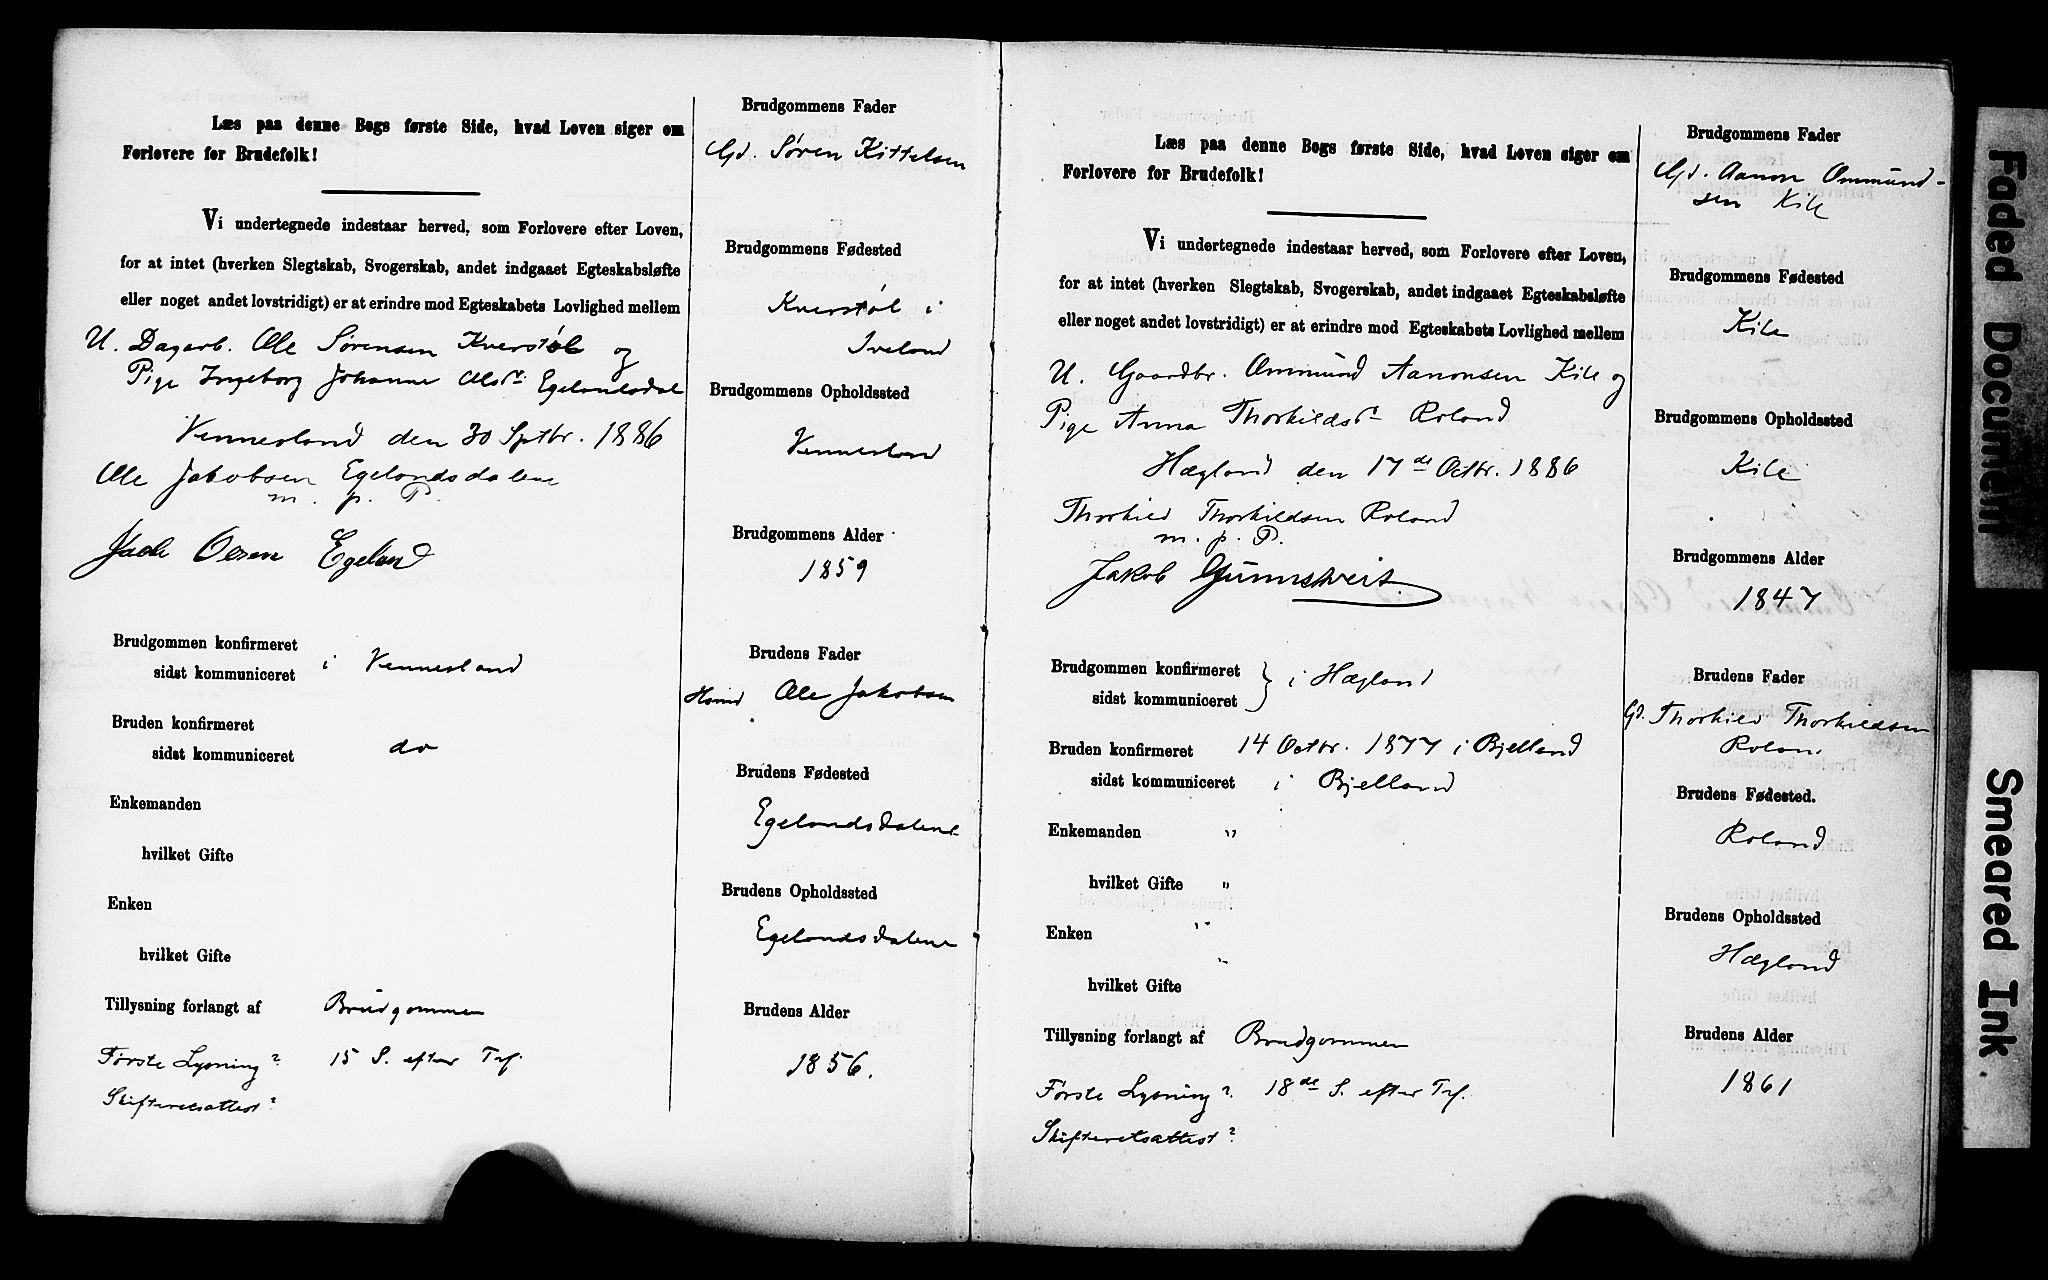 Læs paa denne Bogs første Side, hvad Loven siger om
Forlovere for Brudefolk!
Vi undertegnede indestaar herved, som Forlovere efter Loven,
for at intet (hverken Slegtskab, Svogerskab, andet indgaaet Egteskabsløfte
eller noget andet lovstridigt) er at erindre mod Egteskabets Lovlighed mellem
U. Dagarb. Ole Sørensen Kverstøl og
Pige Ingeborg Johanne Olsdr Egelandsdal
Vennesland den 30 Sptbr. 1886
Ole Jakobsen Egelandsdalene
m. p. P.
Jacob Olsen Egeland
Brudgommen konfirmeret
sidst kommuniceret i Vennesland
Bruden konfirmeret
sidst kommuniceret do
Enkemanden
hvilket Gifte
Enken
hvilket Gifte
Tillysning forlangt af Brudgommen
Første Lysning? 15 S. efter Trf.
Skifteretsattest?
Brudgommens Fader
Gd. Søren Kittelsen
Brudgommens Fødested
Kverstøl i
Iveland
Brudgommens Opholdssted
Vennesland
Brudgommens Alder
1859
Brudens Fader
Hsmd Ole Jakobsen
Brudens Fødested
Egelandsdalene
Brudens Opholdssted
Egelandsdalene
Brudens Alder
1856.
Læs paa denne Bogs første Side, hvad Loven siger om
Forlovere for Brudefolk!
Vi undertegnede indestaar herved, som Forlovere efter Loven,
for at intet (hverken Slegtskab, Svogerskab, andet indgaaet Egteskabsløfte
eller noget andet lovstridigt) er at erindre mod Egteskabets Lovlighed mellem
U. Gaardbr. Ommund Aanonsen Kile og
Pige Anna Thorkildsdr Roland
Hægland den 17de Octbr. 1886
Thorkild Thorkildsen Roland
m. p. P.
Jakob Gunnstveit.
Brudgommen konfirmeret
sidst kommuniceret } i Hægland
Bruden konfirmeret 14 Octbr. 1877 i Bjelland
sidst kommuniceret i Bjelland
Enkemanden "
hvilket Gifte "
Enken "
hvilket Gifte "
Tillysning forlangt af Brudgommen
Første Lysning? 18de S. efter Trf.
Skifteretsattest?
Brudgommens Fader
Gd. Aanon Ommund-
sen Kile
Brudgommens Fødested
Kile
Brudgommens Opholdssted
Kile
Brudgommens Alder
1847
Brudens Fader
Gd. Thorkild Thorkildsen
Roland
Brudens Fødested.
Roland
Brudens Opholdssted
Hægland
Brudens Alder
1861
Faded Document
Smeared Ink